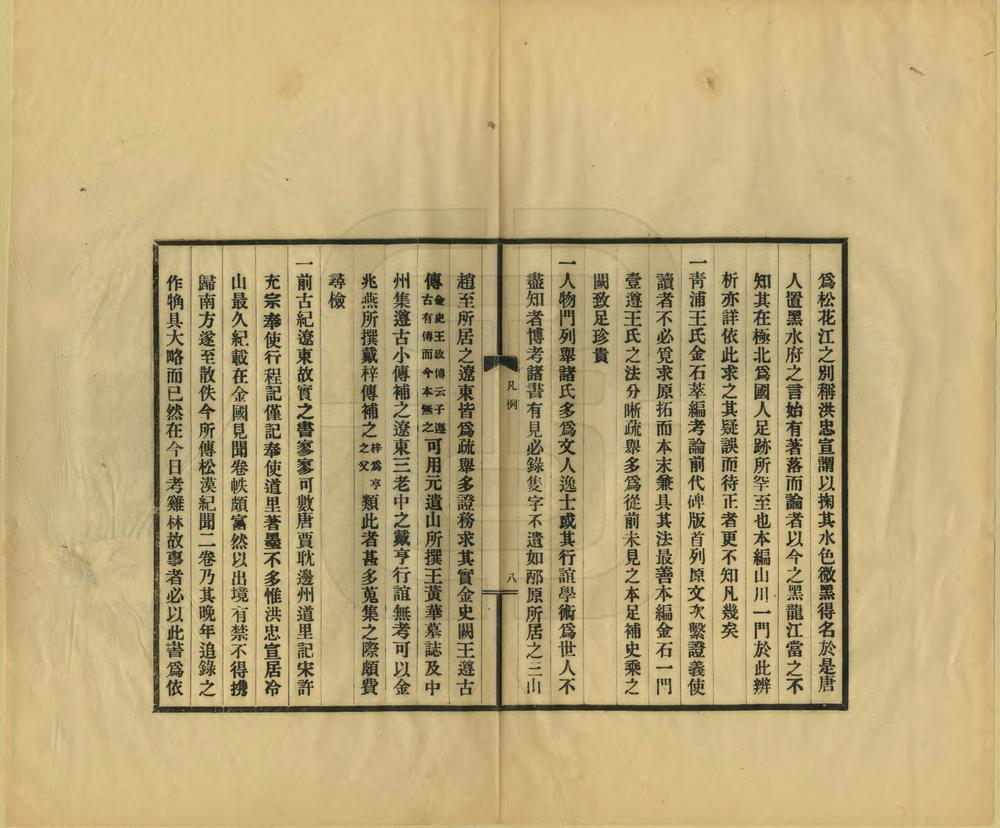 爲松花江之別稱洪忠宣謂以掬其水色微黑得名於是唐
人置黑水府之言始有著落而論者以今之黑龍江當之不
知其在極北爲國人足跡所罕至也本編山川一門於此辨
析亦詳依此求之其疑誤而待正者更不知凡幾矣
一靑浦王氏金石萃編考論前代碑版首列原文次繫證義使
讀者不必覓求原拓而本末兼具其法最善本編金石一門
壹遵王氏之法分晰疏舉多爲從前未見之本足補史乘之
闕致足珍貴
一人物門列舉諸氏多爲文人逸士或其行誼學術爲世人不
盡知者博考諸書有見必錄隻字不遺如邴原所居之三山
凡例
八
趙至所居之遼東皆爲疏舉多證務求其實金史闕王遵古
傳金史王政傳云子遵古有傳而今本無之可用元遺山所撰王黃華墓誌及中
州集遵古小傳補之遼東三老中之戴亨行誼無考可以金
兆燕所撰戴梓傳補之梓爲亨之父類此者甚多蒐集之際頗費
尋檢
一前古紀遼東故實之書寥寥可數唐賈耽邊州道里記宋許
充宗奉使行程記僅記奉使道里著墨不多惟洪忠宣居冷
山最久紀載在金國見聞卷帙頗富然以出境有禁不得攜
歸南方遂至散佚今所傳松漠紀聞二卷乃其晚年追錄之
作觕具大略而已然在今日考雞林故事者必以此書爲依